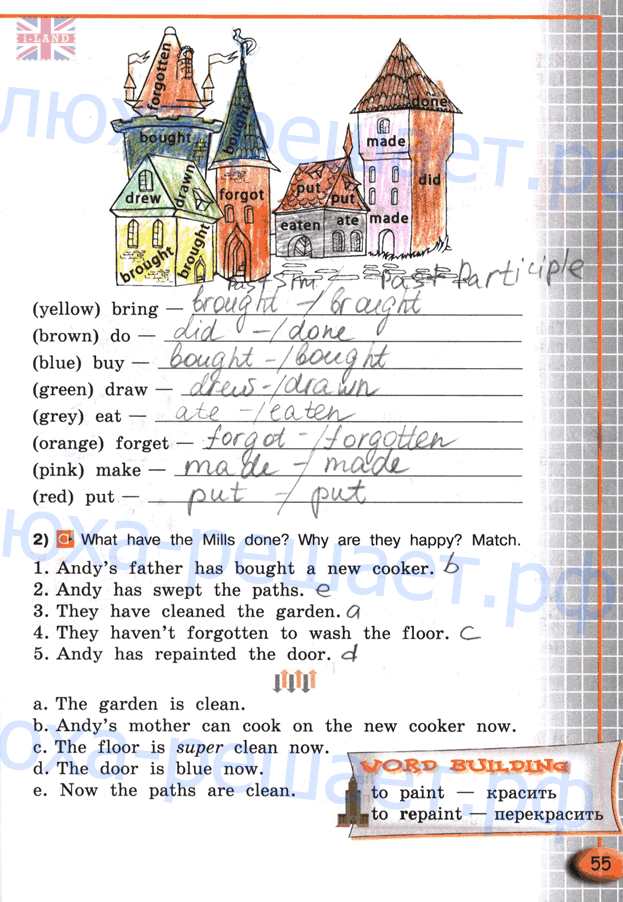 i-LAND
forgotten
bought
bought
done
made
drew
drawn
forgot
put
put
did
eaten
ate
made
brought
brought
Past Sim / Past Participle
(yellow) bring — brought -/brought
(brown) do — did -/done
(blue) buy — bought -/bought
(green) draw — drew -/drawn
(grey) eat — ate -/eaten
(orange) forget — forgot -/forgotten
(pink) make — made -/ made
(red) put — put -/ put
2) What have the Mills done? Why are they happy? Match.
1. Andy's father has bought a new cooker. b
2. Andy has swept the paths. e
3. They have cleaned the garden. a
4. They haven't forgotten to wash the floor. c
5. Andy has repainted the door. d
a. The garden is clean.
b. Andy's mother can cook on the new cooker now.
c. The floor is super clean now.
d. The door is blue now.
e. Now the paths are clean.
WORD BUILDING
to paint — красить
to repaint — перекрасить
55
люха-решает.рф
юха-решает.рф
юха-решает.рф